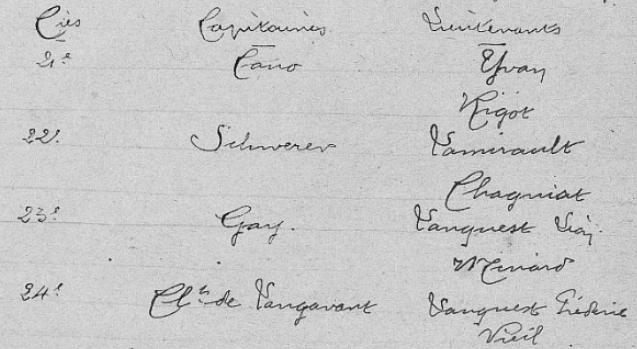 Cies Capitaines Lieutenants
21e Cano Yvan
Rigot
22e Schwerer Lamirault
Chagniat
23e Gay. Vanquest
Minard
24e de Vanquest Fréderic
Vieil